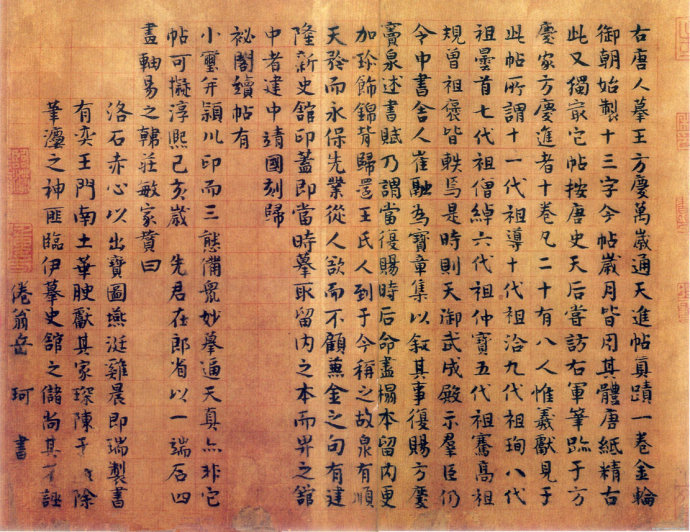 右唐人摹王方慶萬歲通天進帖真蹟一卷金輪
御朝始製十三字今帖歲月皆用其體唐紙精古
此又獨最它帖按唐史天后嘗訪右軍筆跡于方
慶家方慶進者十卷凡二十有八人惟羲獻見于
此帖所謂十一代祖導十代祖洽九代祖珣八代
祖曇首七代祖僧綽六代祖仲寶五代祖騫高祖
規曾祖褒皆軼焉是時則天御武成殿示羣臣仍
令中書舍人崔融為寶章集以敘其事復賜方慶
竇泉述書賦乃謂當復賜時后命盡榻本留內更
加珍飾錦背歸還王氏人到于今稱之故泉有順
天矜而永保先業從人欲而不顧兼金之句有建
隆新史館印蓋即當時摹取留內之本而畀之館
中者建中靖國刻歸
祕閣續帖有
小璽并潁川印而三態備眾妙摹逼天真亦非它
帖可擬淳熙己亥歲 先君在郎省以一端石四
畫軸易之韓莊敏家贊曰
洛石赤心以出寶圖燕涎雞晨即瑞製書
有奕王門南土華腴獻其家琛陳于 除
筆灋之神匪臨伊摹史館之儲尚其 誣
倦翁岳 珂 書